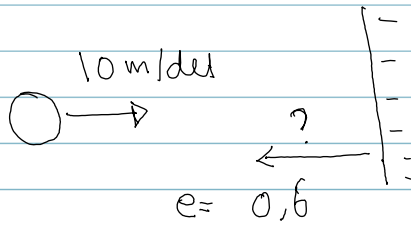 10 m/det
?
e= 0,6